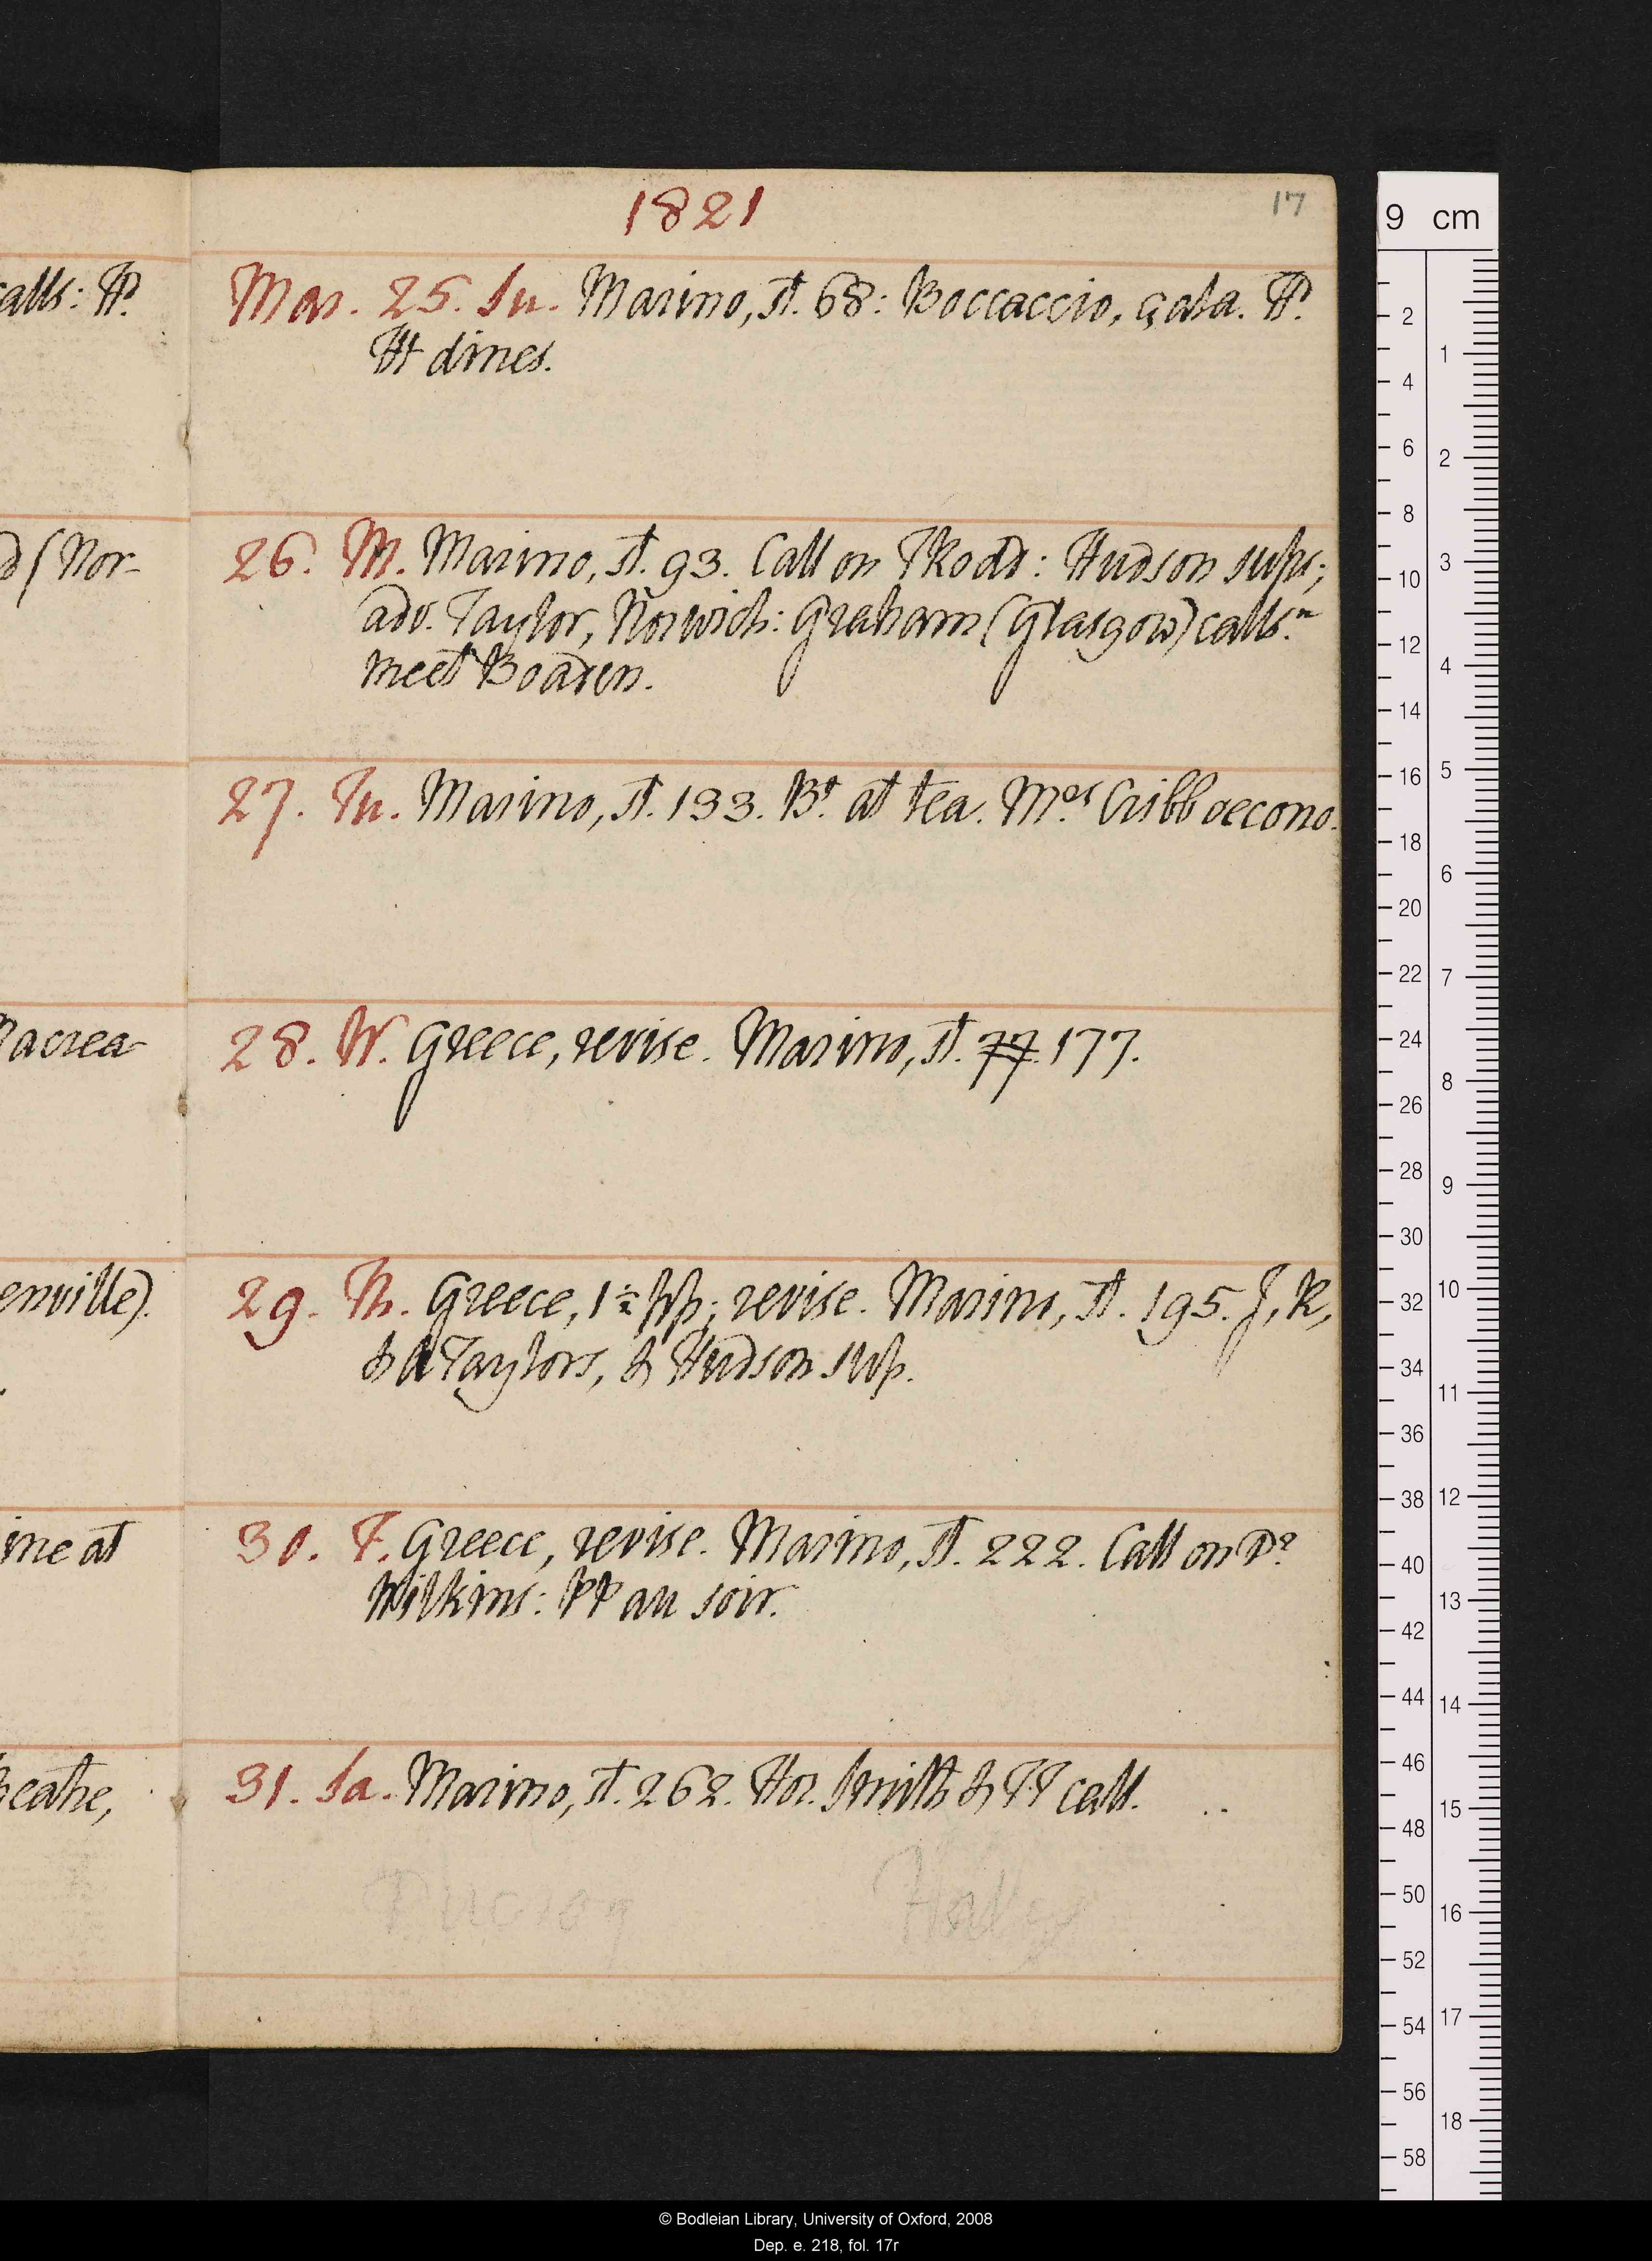 1821
17
alls: TP.
Mar. 25. Su. Marino, st. 68: Boccaccio, çala. TP.
HH dines.
d (Nor-
26. M. Marino, st. 93. Call on TRodd: Hudson sups;
adv. Taylor, Norwich: Graham (Glasgow) calls.n
meet Boaden.
27. Tu. Marino, st. 133. Bt. at tea. Mrs Cribb oecono.
acrea
28. W. Greece, revise. Marino, st. 77. 177.
enville).
29. Th. Greece, 1½ pp; revise. Marino, st. 195. J, R,
& A Taylors, & Hudson sup.
ine at
30. F. Greece, revise. Marino, st. 222. Call on Dr
Wilkins: PP au soir.
eathe,
31. Sa. Marino, st. 262. Hor. Smith & TT call.
9 cm
2
4
6
8
10
12
14
16
18
20
22
24
26
28
30
32
34
36
38
40
42
44
46
48
50
52
54
56
58
1
2
3
4
5
6
7
8
9
10
11
12
13
14
15
16
17
18
© Bodleian Library, University of Oxford, 2008
Dep. e. 218, fol. 17r